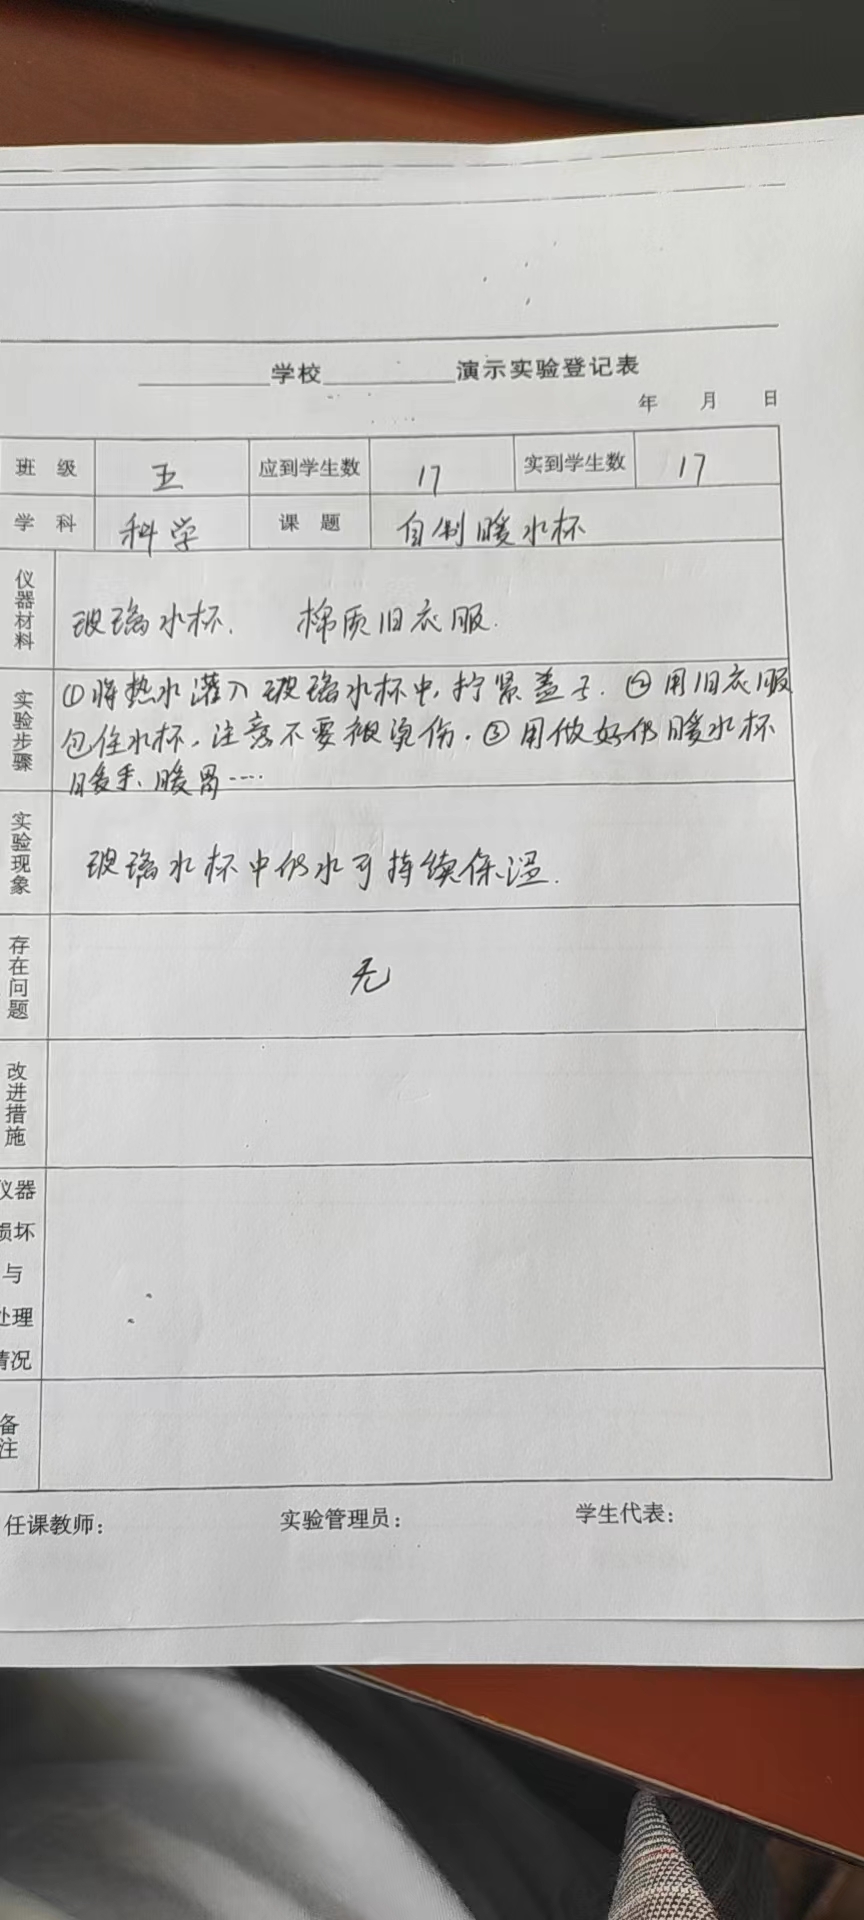 ________学校________演示实验登记表
年 月 日
班 级 五 应到学生数 17 实到学生数 17
学 科 科学 课 题 自制暖水杯
仪器材料 玻璃水杯. 棉质旧衣服.
实验步骤 ①将热水灌入玻璃水杯中,拧紧盖子. ②用旧衣服
包住水杯,注意不要被烫伤. ③用做好的暖水杯
暖手、暖胃……
实验现象 玻璃水杯中的水可持续保温.
存在问题 无
改进措施
仪器
损坏
与
处理
情况
备注
任课教师: 实验管理员: 学生代表: